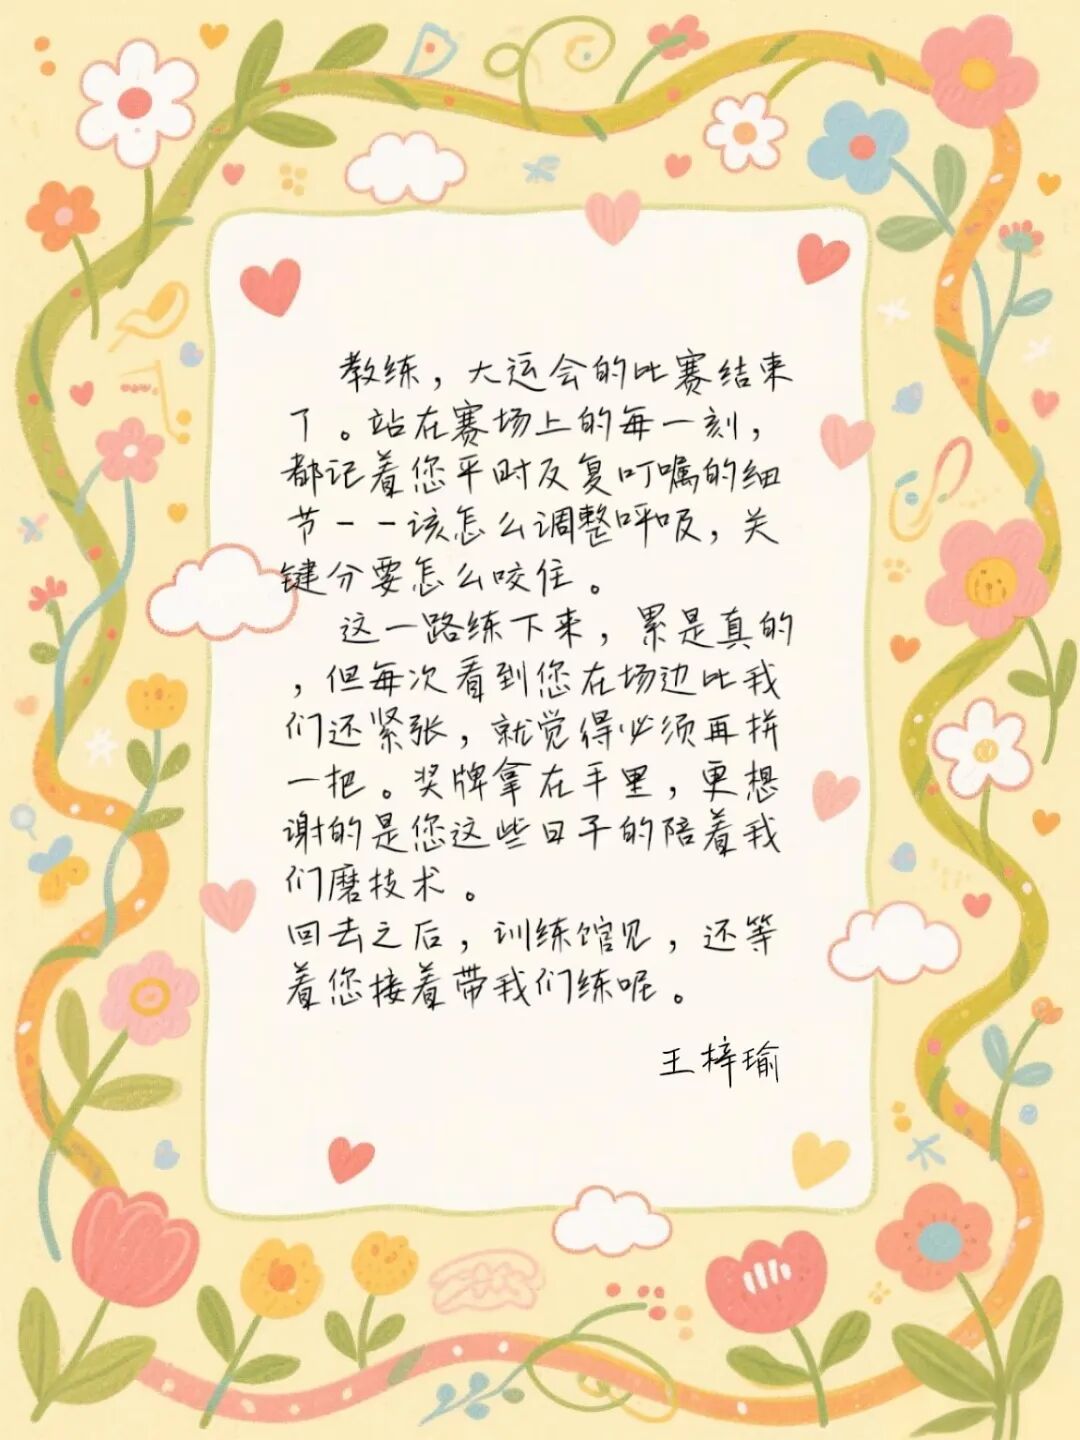 教练，大运会的比赛结束
了。站在赛场上的每一刻，
都记着您平时反复叮嘱的细
节--该怎么调整呼吸，关
键分要怎么咬住。
这一路练下来，累是真的
，但每次看到您在场边比我
们还紧张，就觉得必须再拼
一把。奖牌拿在手里，更想
谢的是您这些日子的陪着我
们磨技术。
回去之后，训练馆见，还等
着您接着带我们练呢。
王梓瑜